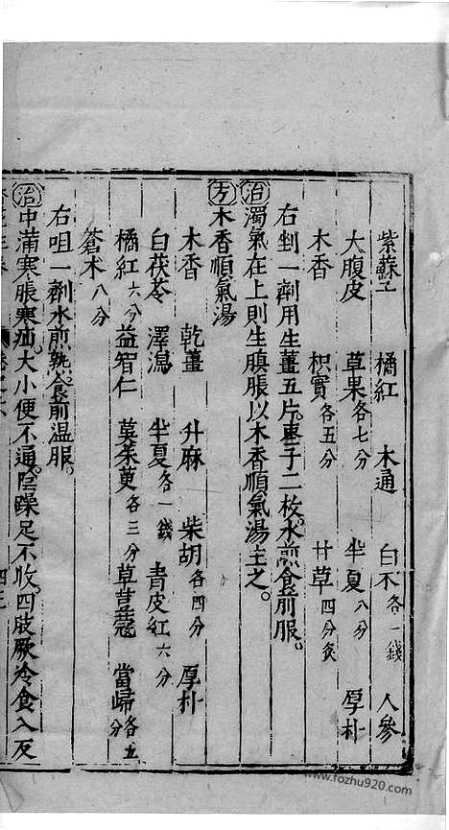 紫蘇子　橘紅　木通　白术各一錢　人參
大腹皮　草果各七分　半夏八分　厚朴
木香　枳實各五分　甘草四分炙
右剉一劑用生薑五片棗子二枚水煎食前服。
治濁氣在上則生䐜脹以木香順氣湯主之。
方木香順氣湯
木香　乾薑　升麻　柴胡各四分　厚朴
白茯苓　澤瀉　半夏各一錢　青皮紅六分
橘紅六分　益智仁　茱萸各三分　草荳蔻　當歸各五分
蒼术八分
右咀一劑水煎熟食前溫服。
治中滿寒脹寒疝大小便不通陰躁足不收四肢厥冷食入反
www.fozhu920.com